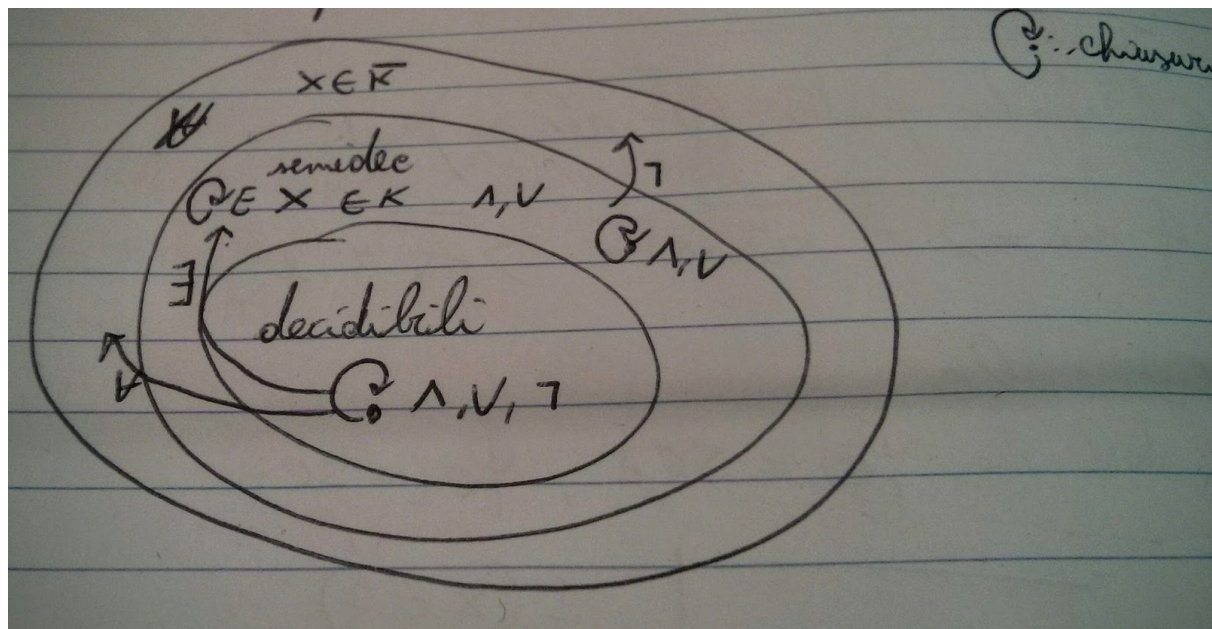 : chiusur
x ∈ K̅
semidec
∃ X ∈ K ∧, ∨
¬
∧, ∨
∃
decidibili
∀
∧, ∨, ¬